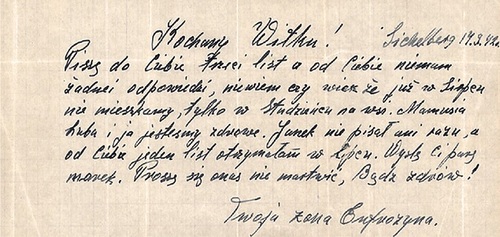 Kochany Witku! Sichelberg 14.9.42
Piszę do Ciebie trzeci list a od Ciebie niemam
żadnei odpowiedzi, niewiem czy wiesz że już w Lipcu
nie mieszkamy, tylko w Studzieńcu na wsi. Mamusia
Kuba i ja jesteśmy zdrowe. Janek nie pisał ani razu, a
od Ciebie jeden list otrzymałam w Lipcu. Wyślę Ci parę
marek. Proszę się o nas nie martwić, Bądź zdrów!
Twoja żona Eufrozyna.